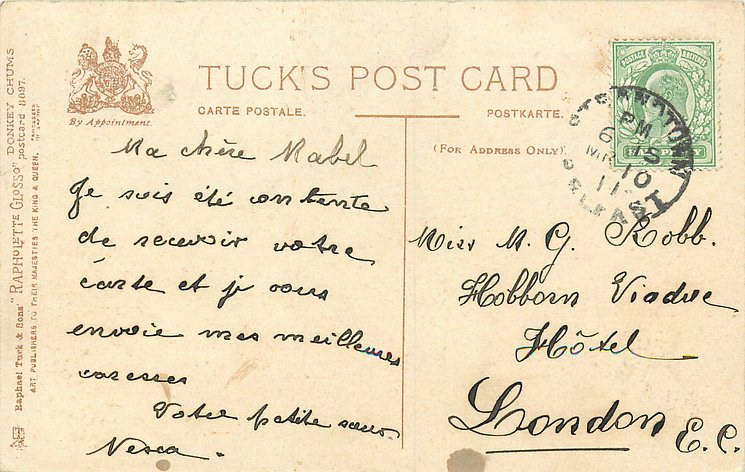 By Appointment.
TUCK'S POST CARD
CARTE POSTALE.
POSTKARTE.
(FOR ADDRESS ONLY)
Raphael Tuck & Sons' "RAPHOLETTE GLOSSO" DONKEY CHUMS
postcard 8097.
ART PUBLISHERS TO THEIR MAJESTIES THE KING & QUEEN.
POSTAGE
PM
6 15
MR 10
11
BELFAST
Ma chère Mabel
Je suis été contente
de recevoir votre
carte et je vous
envoie mes meilleures
caresses
Votre petite sœur
Nesca.
Miss M. G. Robb.
Hobborn Viaduc
Hôtel
London E.C.